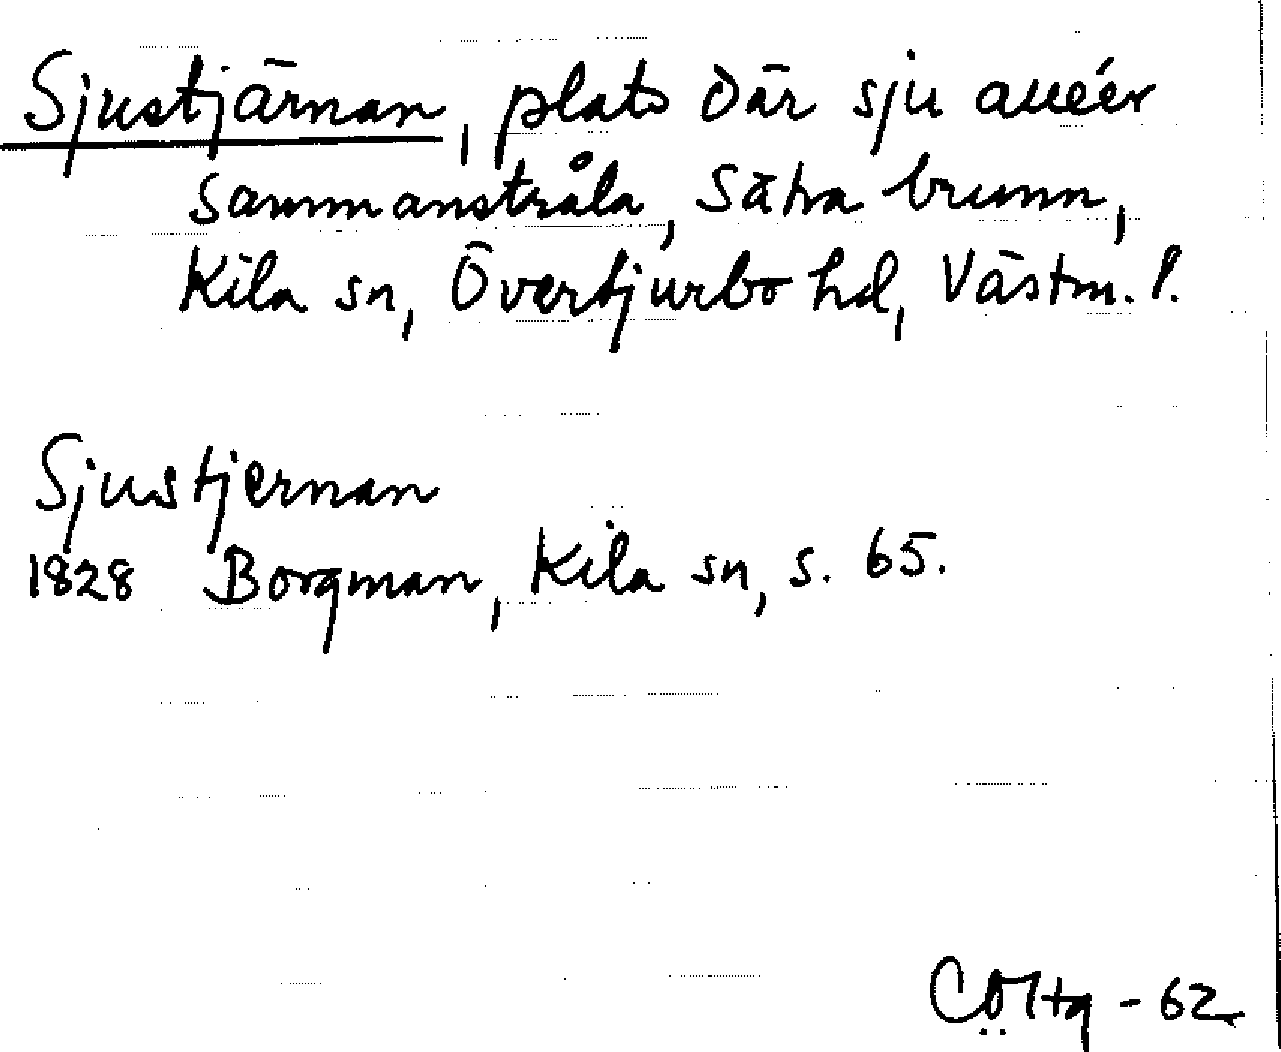 Sjustjärnan, plats där sju alléer
sammanstråla, Sätra brunn,
Kila sn, Övertjurbo hd, Västm. l.
Sjustjernan
1828 Borgman, Kila sn, s. 65.
-62